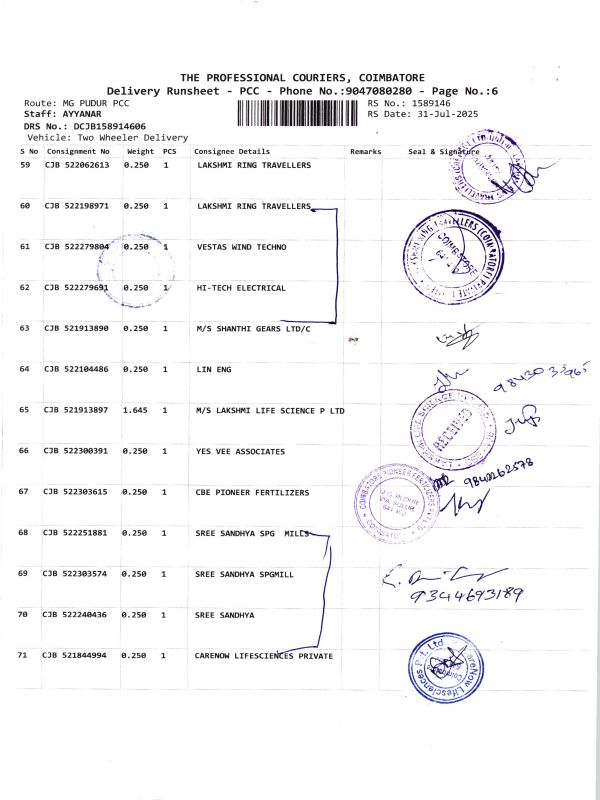 THE PROFESSIONAL COURIERS, COIMBATORE
Delivery Runsheet - PCC - Phone No.:9047080280 - Page No.:6
Route: MG PUDUR PCC RS No.: 1589146
Staff: AYYANAR RS Date: 31-Jul-2025
DRS No.: DCJB158914606
Vehicle: Two Wheeler Delivery
S No Consignment No Weight PCS Consignee Details Remarks Seal & Signature
59 CJB 522062613 0.250 1 LAKSHMI RING TRAVELLERS
60 CJB 522198971 0.250 1 LAKSHMI RING TRAVELLERS
61 CJB 522279804 0.250 1 VESTAS WIND TECHNO
COIMBATORE
62 CJB 522279691 0.250 1 HI-TECH ELECTRICAL
63 CJB 521913890 0.250 1 M/S SHANTHI GEARS LTD/C
64 CJB 522104486 0.250 1 LIN ENG
65 CJB 521913897 1.645 1 M/S LAKSHMI LIFE SCIENCE P LTD
RECEIVED
66 CJB 522300391 0.250 1 YES VEE ASSOCIATES
9840262578
67 CJB 522303615 0.250 1 CBE PIONEER FERTILIZERS
COIMBATORE PIONEER FERTILIZERS PVT LTD
COIMBATORE
68 CJB 522251881 0.250 1 SREE SANDHYA SPG MILLS
69 CJB 522303574 0.250 1 SREE SANDHYA SPGMILL
9344693189
70 CJB 522240436 0.250 1 SREE SANDHYA
71 CJB 521844994 0.250 1 CARENOW LIFESCIENCES PRIVATE
CareNow Lifesciences Pvt. Ltd